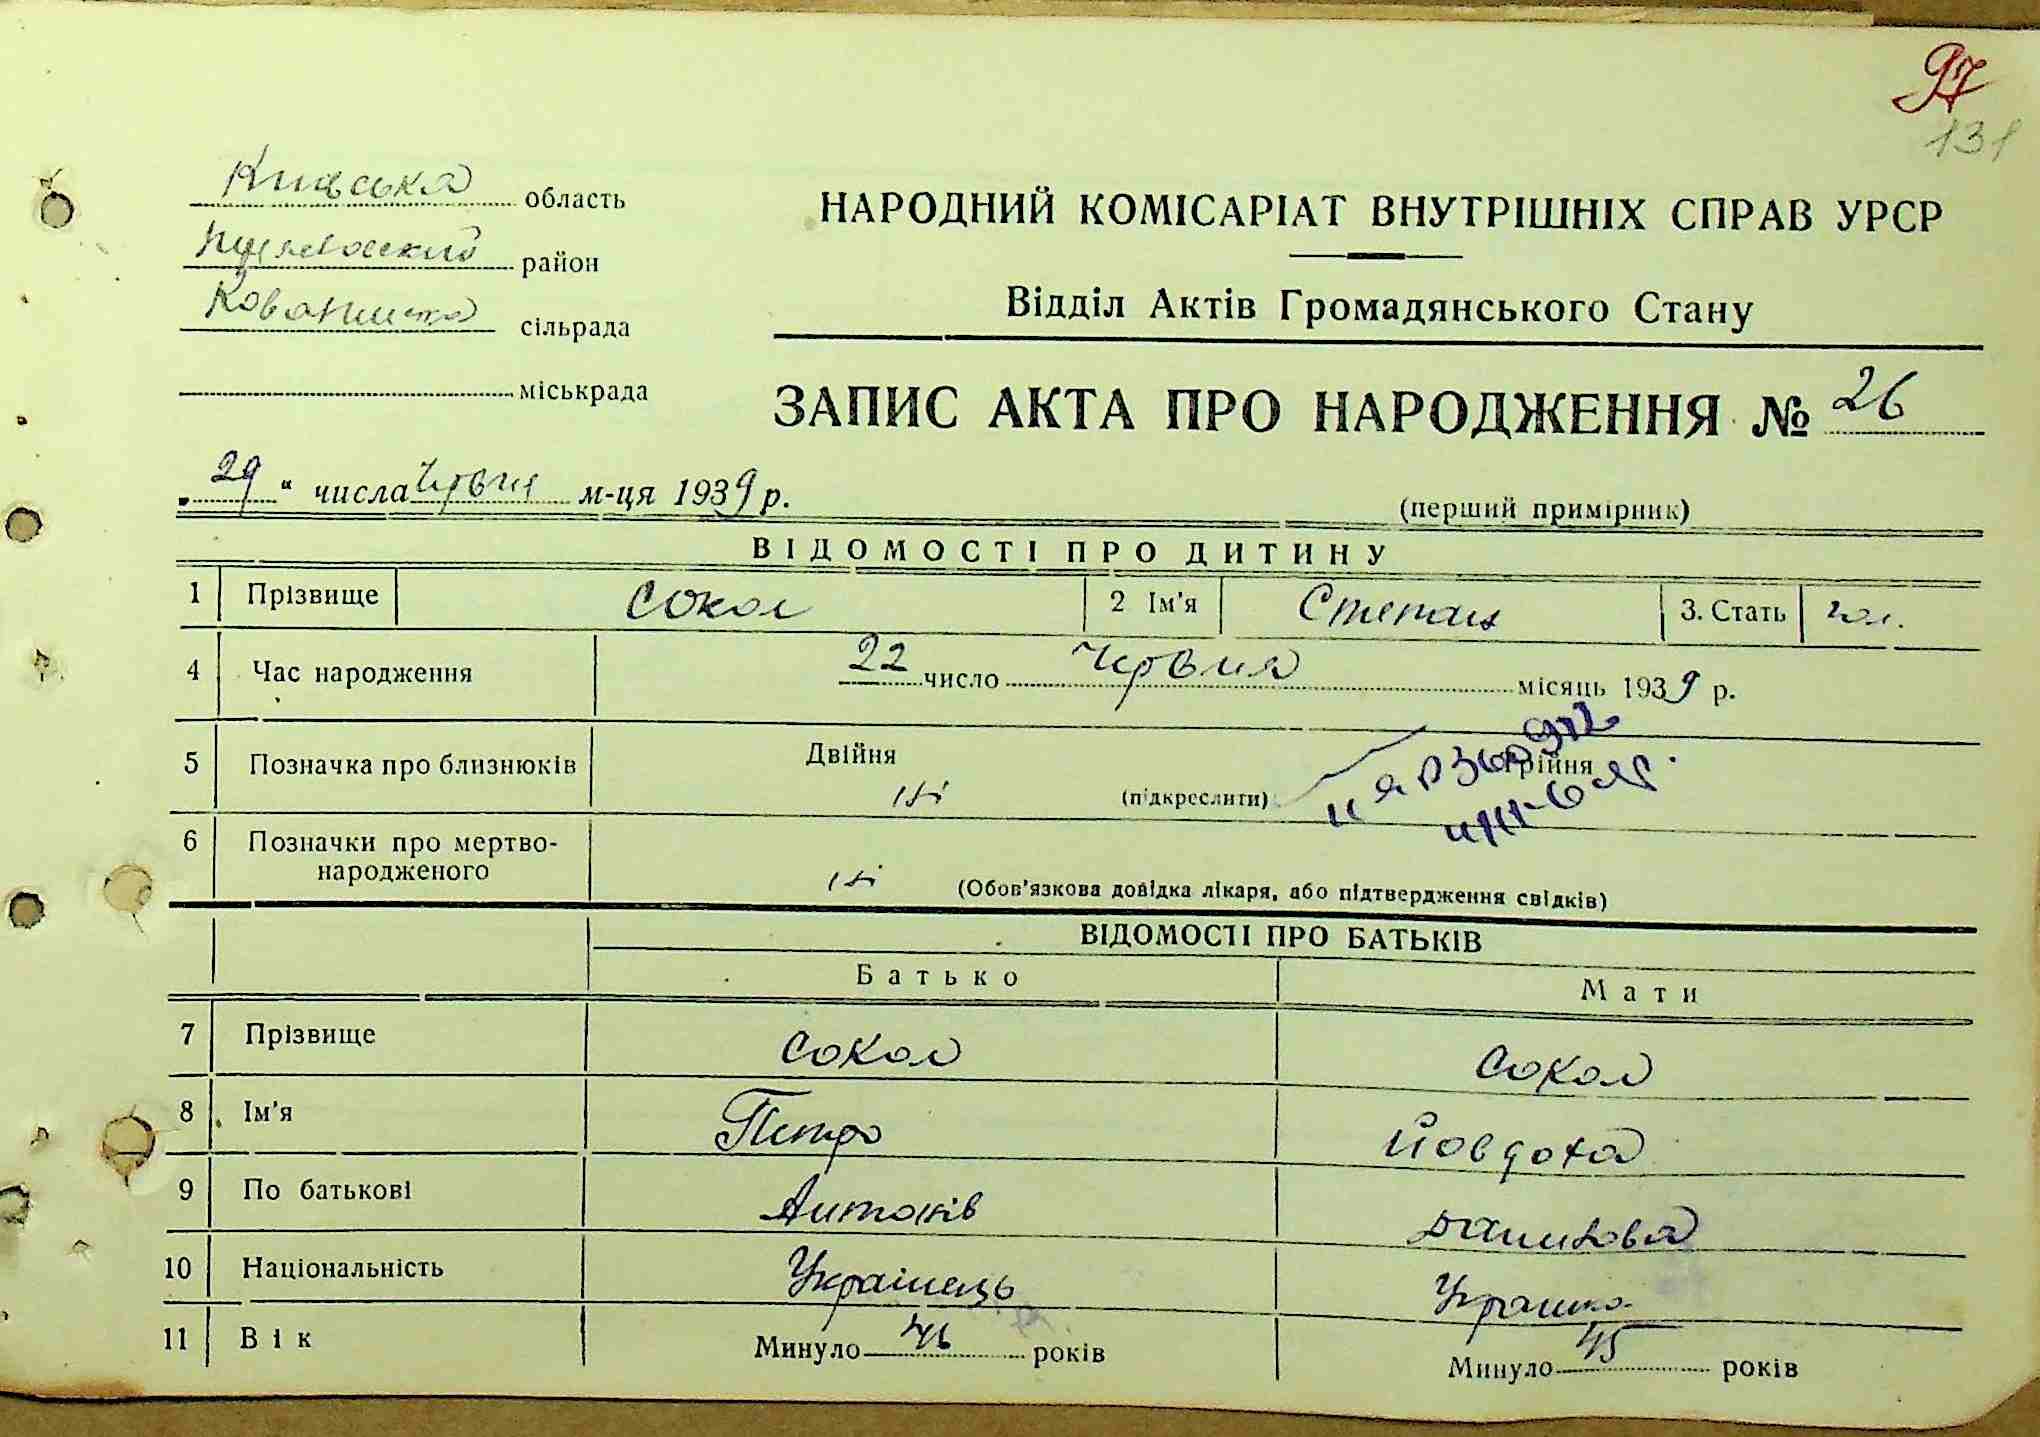 97
131
Київська область
район
сільрада
міськрада
НАРОДНИЙ КОМІСАРІАТ ВНУТРІШНІХ СПРАВ УРСР
Відділ Актів Громадянського Стану
ЗАПИС АКТА ПРО НАРОДЖЕННЯ № 26
„29“ числа Червня м-ця 1939 р.
(перший примірник)
ВІДОМОСТІ ПРО ДИТИНУ
1 Прізвище Сокол 2 Ім'я Степан 3. Стать чол.
4 Час народження 22 число Червня місяць 1939 р.
5 Позначка про близнюків Двійня ні (підкреслити) Трійня
6 Позначки про мертво-
народженого ні (Обов'язкова довідка лікаря, або підтвердження свідків)
ВІДОМОСТІ ПРО БАТЬКІВ
Батько Мати
7 Прізвище Сокол Сокол
8 Ім'я Петро Йовдоха
9 По батькові Антонів Данилова
10 Національність Українець Українка
11 Вік Минуло 46 років Минуло 45 років